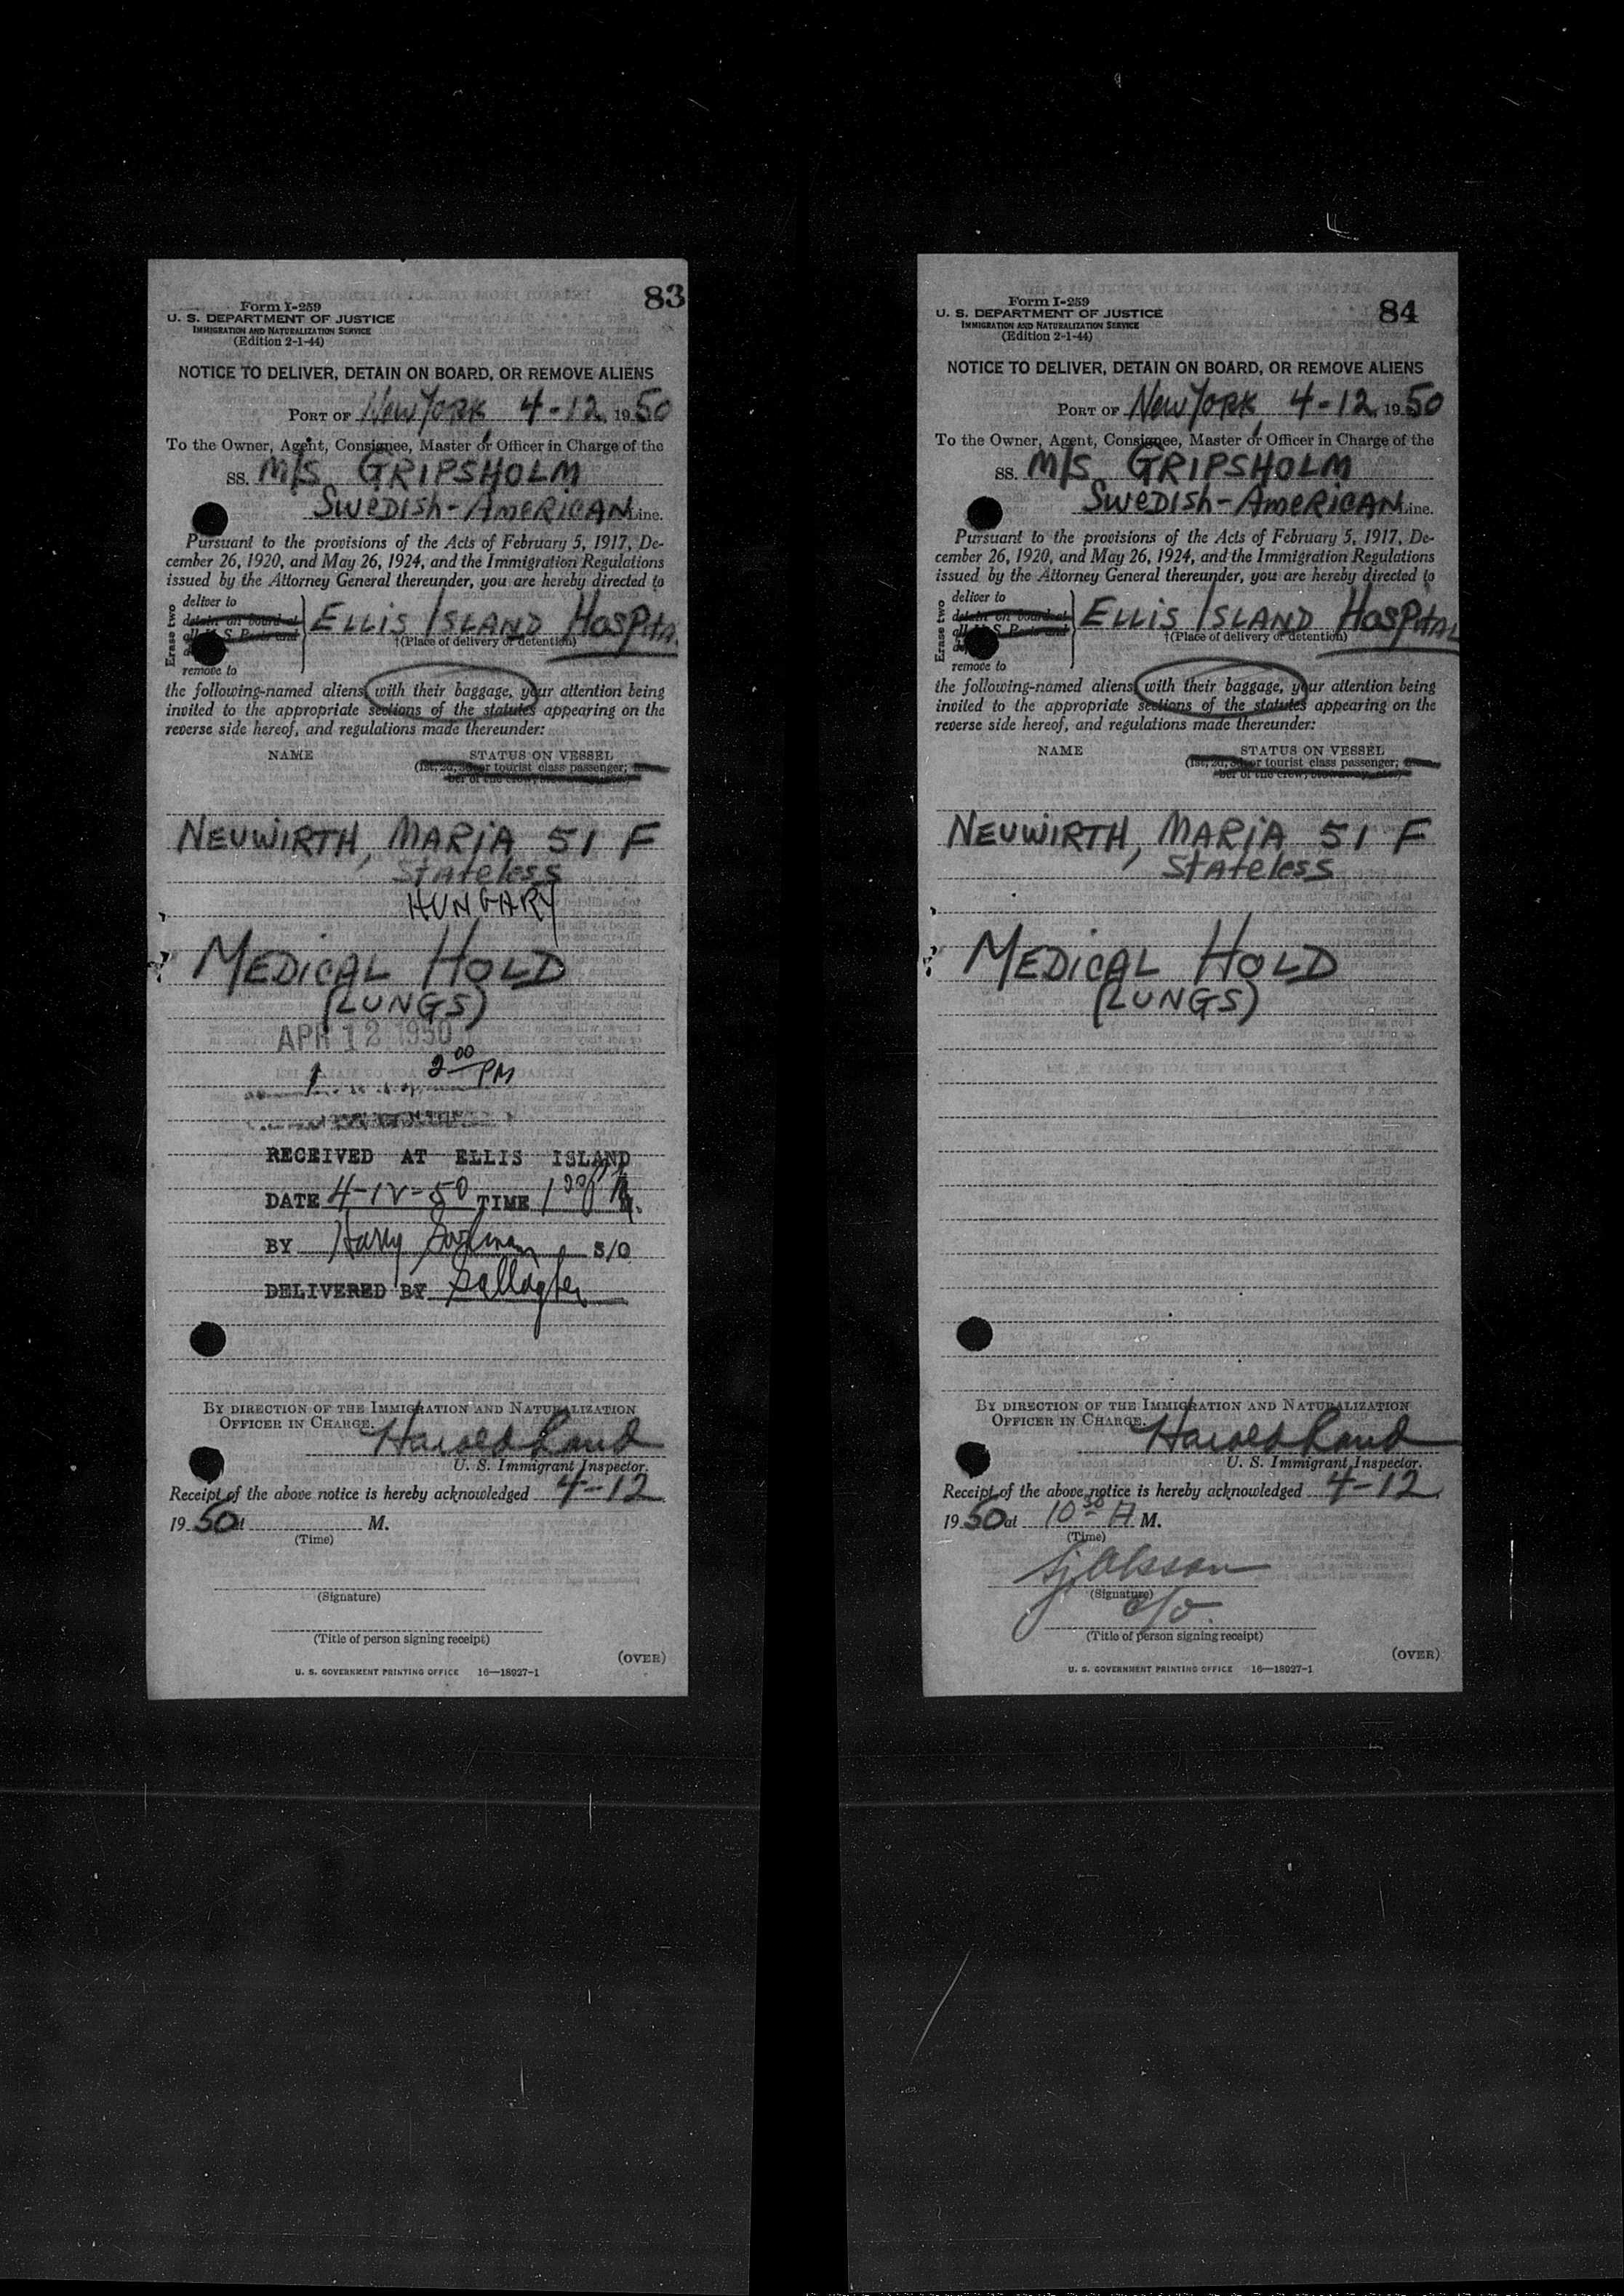 83
Form I-259
U. S. DEPARTMENT OF JUSTICE
IMMIGRATION AND NATURALIZATION SERVICE
(Edition 2-1-44)
NOTICE TO DELIVER, DETAIN ON BOARD, OR REMOVE ALIENS
PORT OF New York, 4-12, 1950
To the Owner, Agent, Consignee, Master or Officer in Charge of the
SS. M/S GRIPSHOLM
SWEDISH-AMERICAN Line.
Pursuant to the provisions of the Acts of February 5, 1917, De-
cember 26, 1920, and May 26, 1924, and the Immigration Regulations
issued by the Attorney General thereunder, you are hereby directed to
Erase two
deliver to
detain on board at
all U. S. Ports and
remove to
ELLIS ISLAND HOSPITA
†(Place of delivery or detention)
the following-named aliens with their baggage, your attention being
invited to the appropriate sections of the statutes appearing on the
reverse side hereof, and regulations made thereunder:
NAME STATUS ON VESSEL
(1st, 2d, 3d, or tourist class passenger;
ber of the crew,
NEUWIRTH, MARIA 51 F
Stateless
HUNGARY
MEDICAL HOLD
(LUNGS)
APR 12 1950
1 2 00 PM
RECEIVED AT ELLIS ISLAND
DATE 4-12-50 TIME 1
BY Harry S/O
DELIVERED BY Gallagher
BY DIRECTION OF THE IMMIGRATION AND NATURALIZATION
OFFICER IN CHARGE.
Harold Land
U. S. Immigrant Inspector.
Receipt of the above notice is hereby acknowledged 4-12,
1950 at M.
(Time)
(Signature)
(Title of person signing receipt)
(OVER)
U. S. GOVERNMENT PRINTING OFFICE 16—18927-1
84
Form I-259
U. S. DEPARTMENT OF JUSTICE
IMMIGRATION AND NATURALIZATION SERVICE
(Edition 2-1-44)
NOTICE TO DELIVER, DETAIN ON BOARD, OR REMOVE ALIENS
PORT OF New York, 4-12, 1950
To the Owner, Agent, Consignee, Master or Officer in Charge of the
SS. M/S GRIPSHOLM
SWEDISH-AMERICAN Line.
Pursuant to the provisions of the Acts of February 5, 1917, De-
cember 26, 1920, and May 26, 1924, and the Immigration Regulations
issued by the Attorney General thereunder, you are hereby directed to
Erase two
deliver to
detain on board at
all U. S. Ports and
remove to
ELLIS ISLAND HOSPITAL
†(Place of delivery or detention)
the following-named aliens with their baggage, your attention being
invited to the appropriate sections of the statutes appearing on the
reverse side hereof, and regulations made thereunder:
NAME STATUS ON VESSEL
(1st, 2d, 3d, or tourist class passenger;
ber of the crew, stowaway, etc.)
NEUWIRTH, MARIA 51 F
Stateless
MEDICAL HOLD
(LUNGS)
BY DIRECTION OF THE IMMIGRATION AND NATURALIZATION
OFFICER IN CHARGE.
Harold Land
U. S. Immigrant Inspector.
Receipt of the above notice is hereby acknowledged 4-12,
1950 at 10 30 A M.
(Time)
Sj Olsson
(Signature)
c/o.
(Title of person signing receipt)
(OVER)
U. S. GOVERNMENT PRINTING OFFICE 16—18927-1